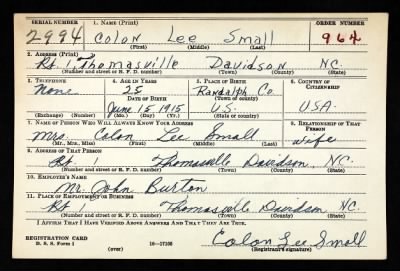 SERIAL NUMBER 1. NAME (Print) ORDER NUMBER
2994 Colon Lee Small 964
(First) (Middle) (Last)
2. ADDRESS (Print)
Rt. 1 Thomasville Davidson N.C.
(Number and street or R. F. D. number) (Town) (County) (State)
3. TELEPHONE 4. AGE IN YEARS 5. PLACE OF BIRTH 6. COUNTRY OF CITIZENSHIP
None 25 Randolph Co.
DATE OF BIRTH (Town or county)
June 15 1915 U.S. USA
(Exchange) (Number) (Mo.) (Day) (Yr.) (State or country)
7. NAME OF PERSON WHO WILL ALWAYS KNOW YOUR ADDRESS 8. RELATIONSHIP OF THAT PERSON
Mrs. Colon Lee Small wife
(Mr., Mrs., Miss) (First) (Middle) (Last)
9. ADDRESS OF THAT PERSON
Rt. 1 Thomasville Davidson, N.C.
(Number and street or R. F. D. number) (Town) (County) (State)
10. EMPLOYER'S NAME
Mr. John Burton
11. PLACE OF EMPLOYMENT OR BUSINESS
Rt 1 Thomasville Davidson N.C.
(Number and street or R. F. D. number) (Town) (County) (State)
I AFFIRM THAT I HAVE VERIFIED ABOVE ANSWERS AND THAT THEY ARE TRUE.
REGISTRATION CARD
D. S. S. Form 1 (over) 16—17105 Colon Lee Small
(Registrant's signature)